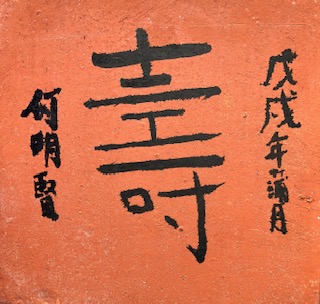 戊戌年蒲月
壽
何明賢